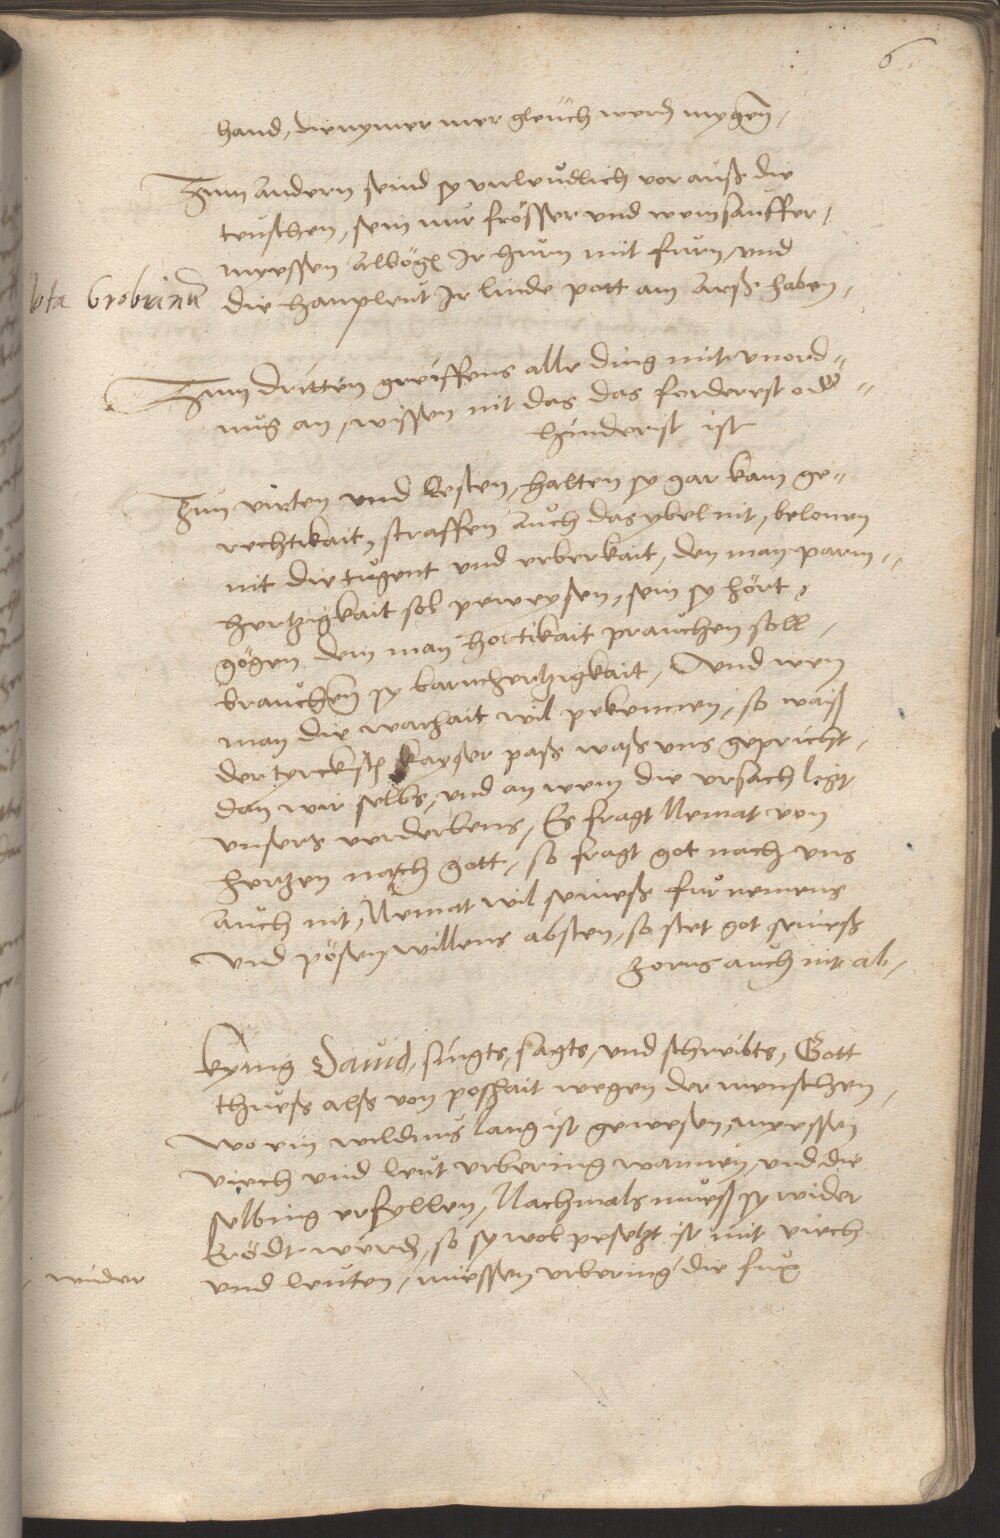 6
hand, die nymer mer gleich werd mygen,
Zum Andern seind sy vnleydlich vor auß die
teuschen, sein nur frösser vnd weinsauffer,
müessen Albögn Jr hurn mit furn, vnd
Nota Grobianu
die hauptleut Jr linde pett am Arß haben,
Zum dritten greiffens alle ding mit vnord=
nug an, wissen nit das das forderest oder
hinderist ist
Zum virten vnd lesten, halten sy gar kain ge=
rechtikait, straffen Auch das ybel nit, belonen
nit die tugent vnd erberkait, den man parm=
hertzigkait sol peweysen, sein sy hört,
gögen dem man hortikait prauchen soll,
brauchen sy barmhertzigkait, Vnd wen
man die warhait wil pekennen, so waiß
der tyrckisch kayser paß waß vns gepricht,
dan wir selbs, vnd an wem die vrsach ligt
vnsers verderbens, Es fragt Nemat von
hertzen nach gott, so fragt got nach vns
Auch nit, Nemat wil seineß furnemens
vnd pösen willens absten, so stet got seineß
zorns auch nit ab,
kynig Dauid, singts, sagts, vnd schreibts, Gott
thueß alß von poshait wegen der menschen,
wo ein wildnus lang ist gewesen, müessen
viech vnd leut vrbering wannen, vnd die
selbing erfyllen, Nachmals mueß sy wider
Erödt werdn, so sy wol pesetzt ist mit viech
wider
vnd leuten, müessen vrbering die fux